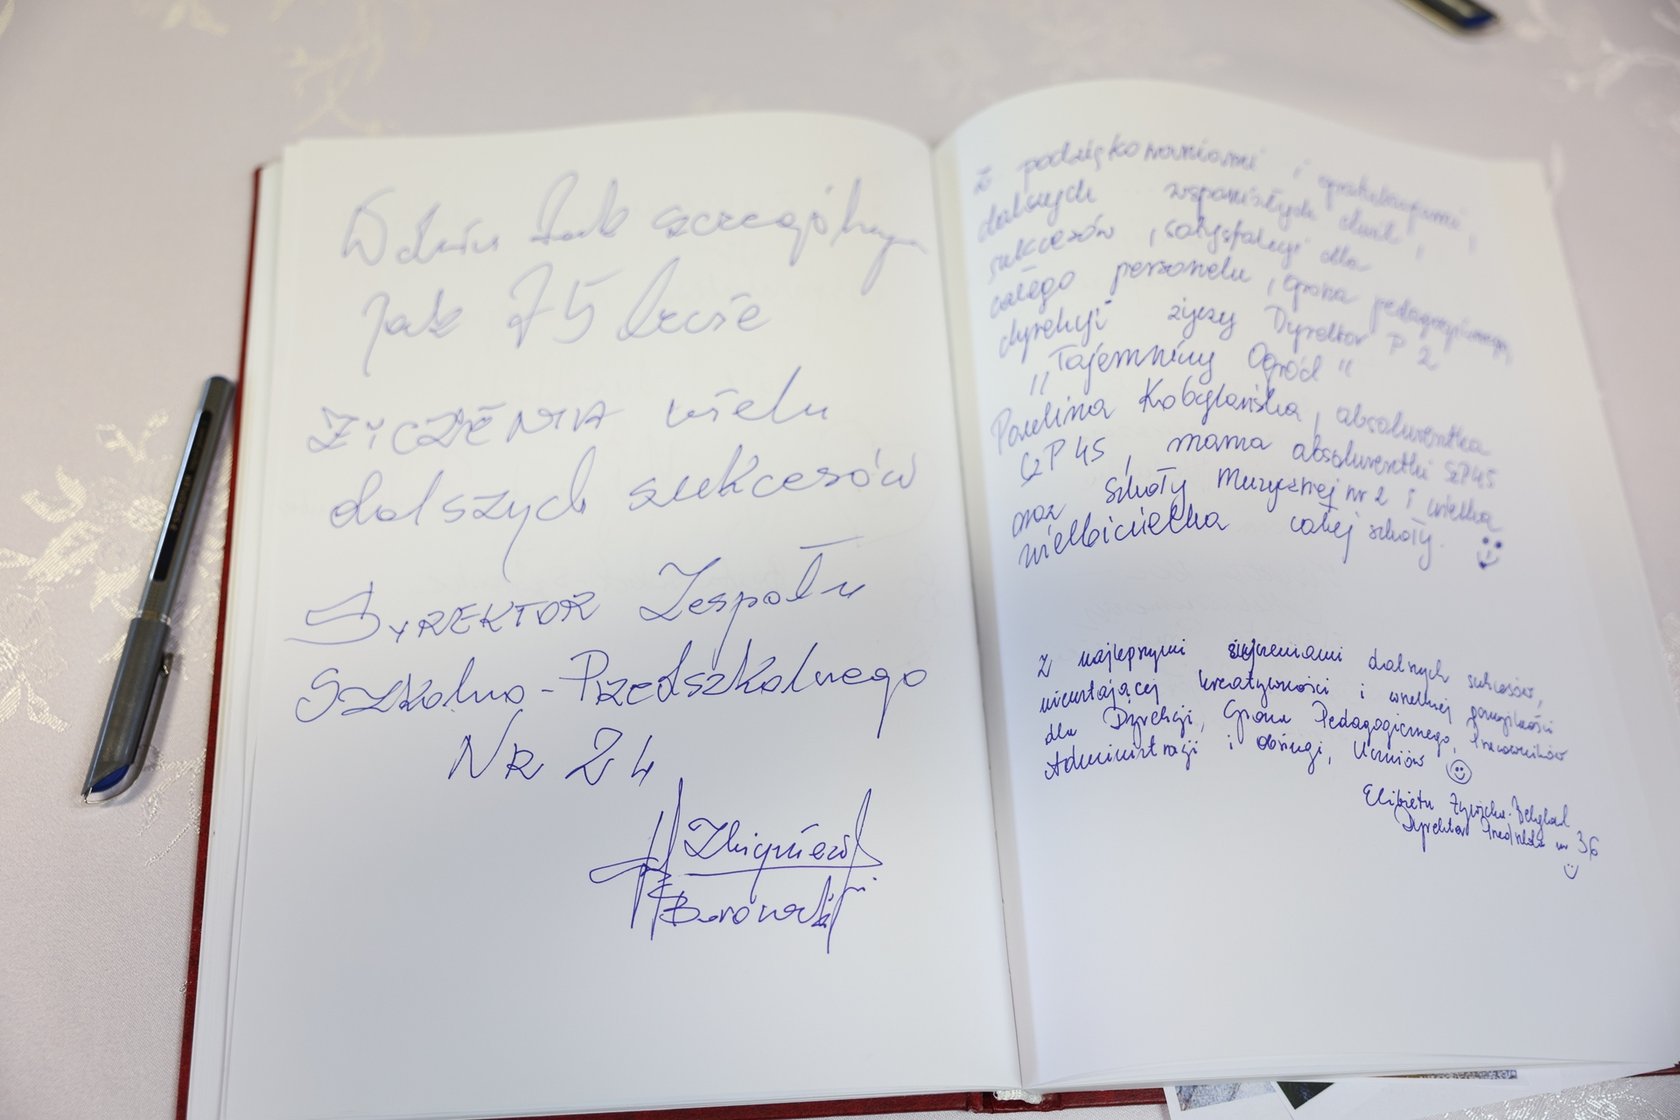 W dniu tak szczególnym
jak 75 lecie
ŻYCZENIA wielu
dalszych sukcesów
DYREKTOR Zespołu
Szkolno-Przedszkolnego
NR 24
Zbigniew
Z podziękowaniami i gratulacjami,
dalszych wspaniałych chwil,
sukcesów, satysfakcji dla
całego personelu, grona pedagogicznego,
dyrekcji życzy Dyrektor P 2
"Tajemniczy Ogród"
Paulina Kobylańska, absolwentka
SP45, mama absolwentki SP45
oraz Szkoły Muzycznej nr 2 i wielka
wielbicielka całej szkoły.
Z najlepszymi życzeniami dalszych sukcesów,
nieustającej kreatywności i wszelkiej pomyślności
dla Dyrekcji, Grona Pedagogicznego, Pracowników
Administracji i obsługi, Uczniów
Elżbieta
Dyrektor Przedszkola nr 36